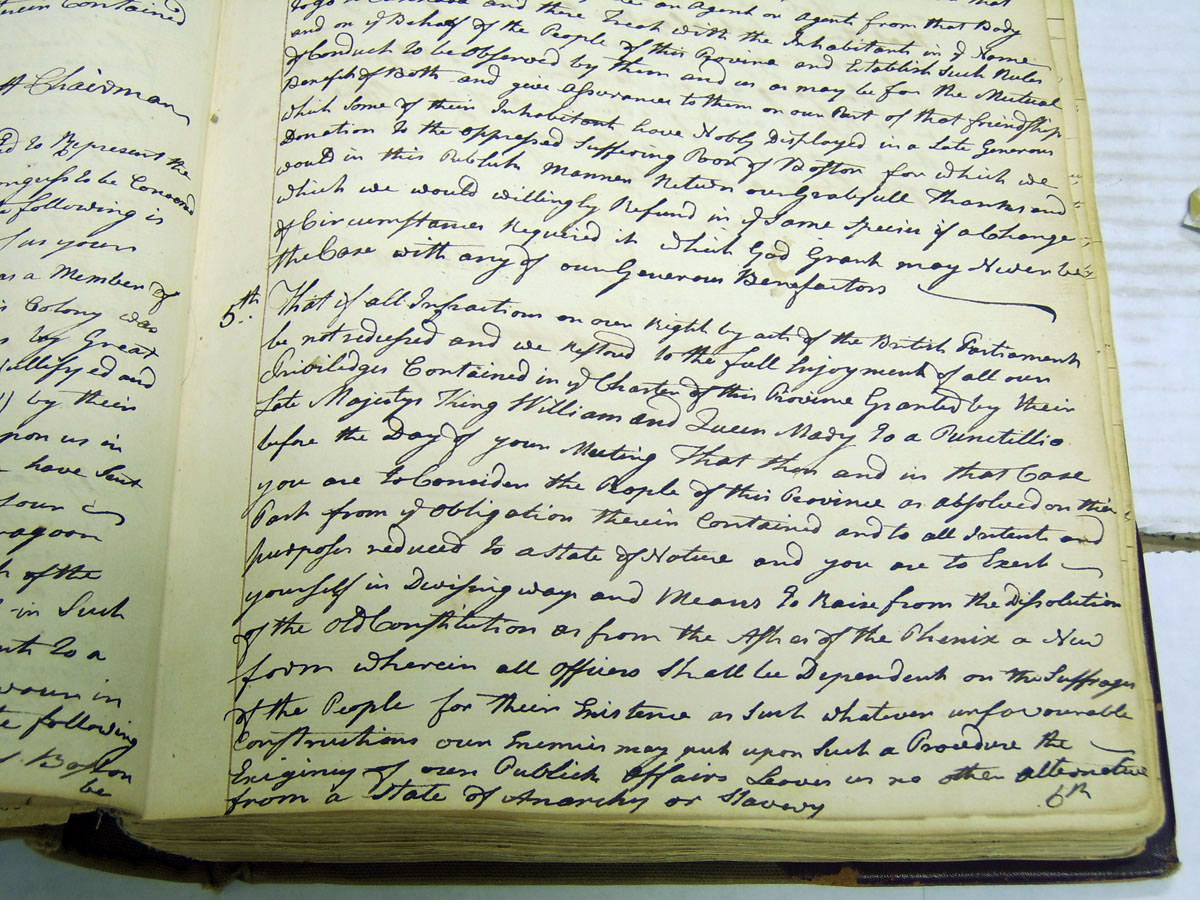 tein Contained
Chairman
ed to Represent the
ongress to be Convened
e following is
for your
as a Member of
s Colony was
by Great
fullifyed and
by their
upon us in
have Sent
sour
ragoon
h of the
in Such
nts to a
voun in
te following
Boston
be
to go to and there Treat with the Inhabitants in ye Name
an Agent or Agents from that Body
and on ye Behalf of the People of this Province and Establish Such Rules
of Conduct to be Observed by them and us as may be for the Mutual
Benefit of Both and give assurance to them on our Part of that friendship
which Some of their Inhabitants have Nobly Displayed in a Late Generous
Donation to the oppressed Suffering Poor of Boston for which we
would in this Publick manner Return our Gratefull Thanks and
which we would willingly Refund in ye Same Species if a Change
of Circumstances Required it which God Grant may Never be
the Case with any of our Generous Benefactors
5th That if all Infractions on our Right by acts of the British Parliament
be not redressed and we Restored to the full Enjoyment of all our
Priviledges Contained in ye Charter of this Province Granted by their
Late Majestys King William and Queen Mary to a Punctillio
before the Day of your Meeting That then and in that Case
you are to Consider the People of this Province as absolved on their
Part from ye obligation therein Contained and to all Intents and
purposes reduced to a State of Nature and you are to Exert
yourself in Devising ways and Means to Raise from the Dissolution
of the old Constitution as from the Ashes of the Phenix a New
form wherein all officers Shall be Dependent on the Suffrages
of the People for their Existence as Such whatever unfavourable
Constructions our Enemies may put upon Such a Procedure the
Exigincy of our Publick affairs Leaves us no other alternative
from a State of Anarchy or Slavery
6th